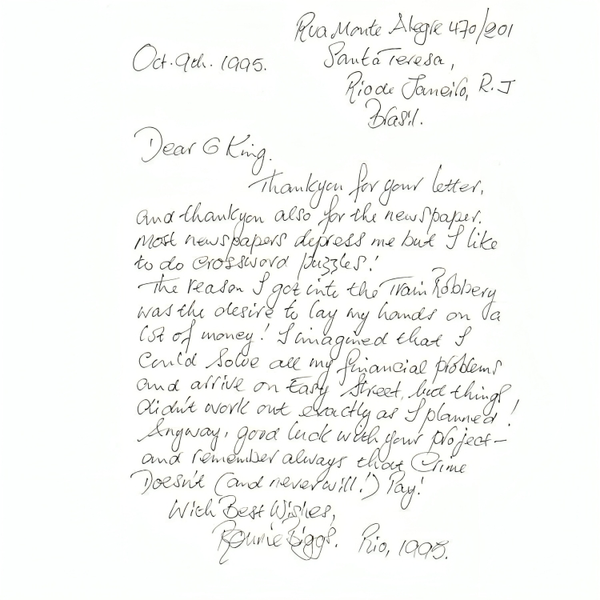 Rua Monte Alegre 470/201
Oct. 9th. 1995.
Santa Teresa,
Rio de Janeiro, R.J
Brasil.
Dear G King.
Thankyou for your letter,
and thankyou also for the newspaper.
Most newspapers depress me but I like
to do crossword puzzles!
The reason I got into the Train Robbery
was the desire to lay my hands on a
lot of money! I imagined that I
could solve all my financial problems
and arrive on Easy Street, but things
didn't work out exactly as I planned!
Anyway, good luck with your project—
and remember always that Crime
Doesn't (and never will!) Pay!
With Best Wishes,
Ronnie Biggs. Rio, 1995.